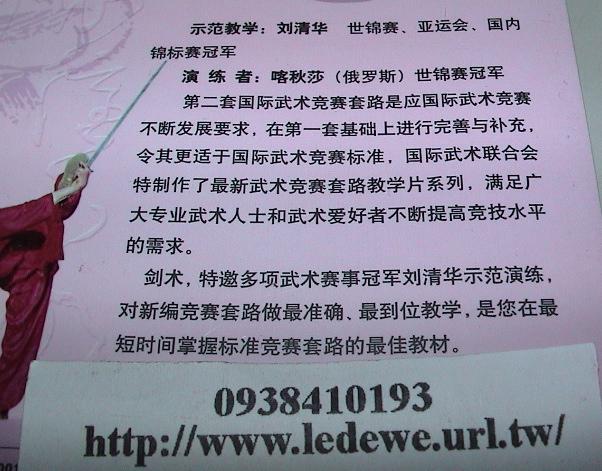 示范教学：刘清华 世锦赛、亚运会、国内
锦标赛冠军
演 练 者：喀秋莎（俄罗斯）世锦赛冠军
第二套国际武术竞赛套路是应国际武术竞赛
不断发展要求，在第一套基础上进行完善与补充，
令其更适于国际武术竞赛标准，国际武术联合会
特制作了最新武术竞赛套路教学片系列，满足广
大专业武术人士和武术爱好者不断提高竞技水平
的需求。
剑术，特邀多项武术赛事冠军刘清华示范演练，
对新编竞赛套路做最准确、最到位教学，是您在最
短时间掌握标准竞赛套路的最佳教材。
0938410193
http://www.ledewe.url.tw/